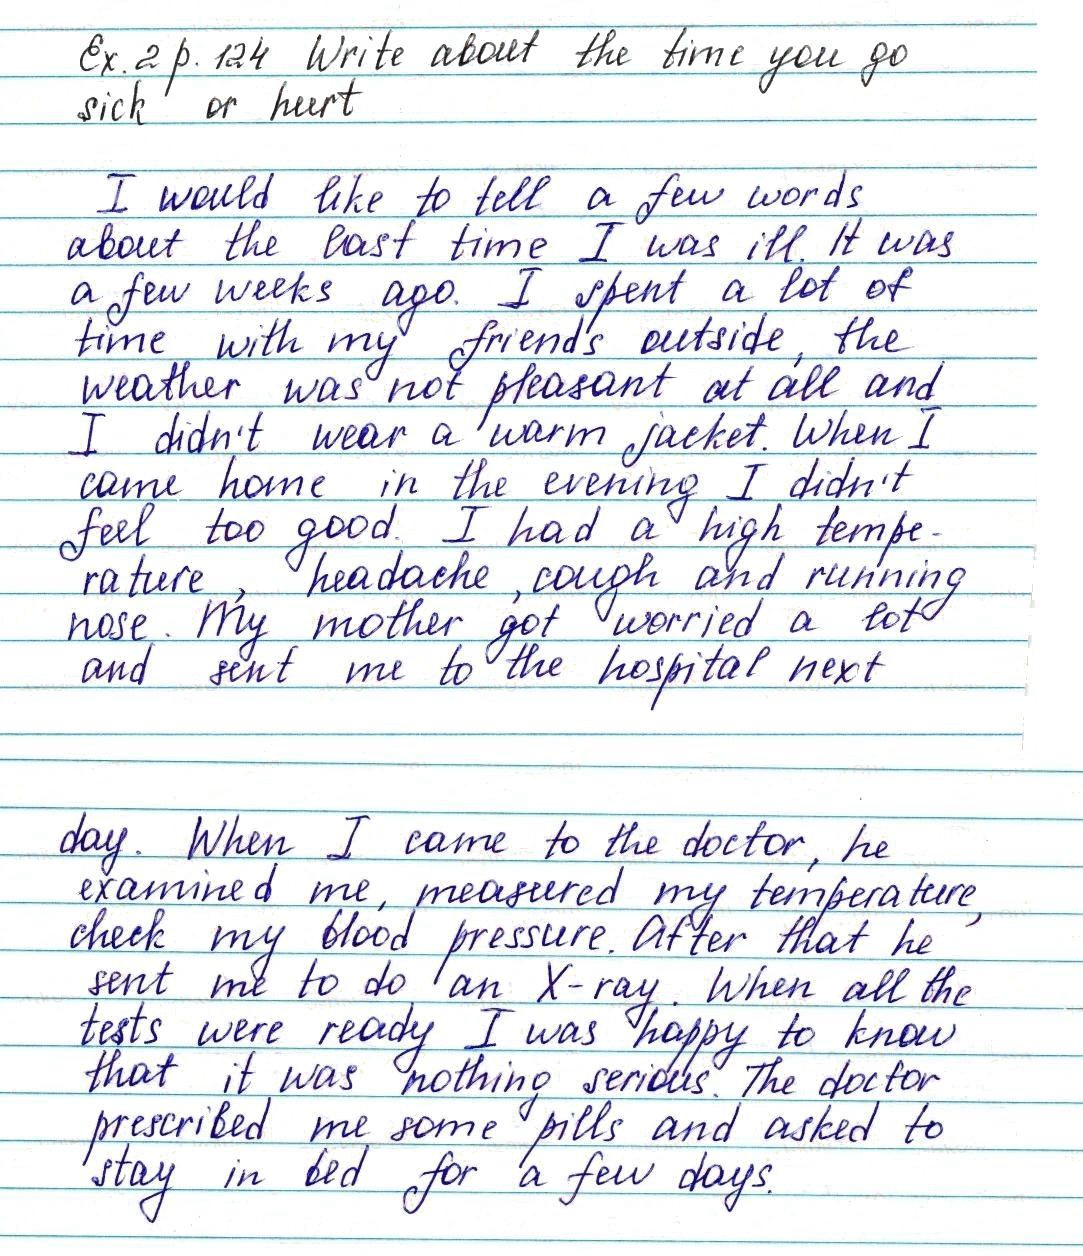 Ex. 2 p. 124 Write about the time you go
sick or hurt
I would like to tell a few words
about the last time I was ill. It was
a few weeks ago. I spent a lot of
time with my friends outside, the
weather was not pleasant at all and
I didn't wear a warm jacket. When I
came home in the evening I didn't
feel too good. I had a high tempe-
rature, headache, cough and running
nose. My mother got worried a lot
and sent me to the hospital next
day. When I came to the doctor, he
examined me, measured my temperature,
check my blood pressure. After that he
sent me to do an X-ray. When all the
tests were ready I was happy to know
that it was nothing serious. The doctor
prescribed me some pills and asked to
stay in bed for a few days.